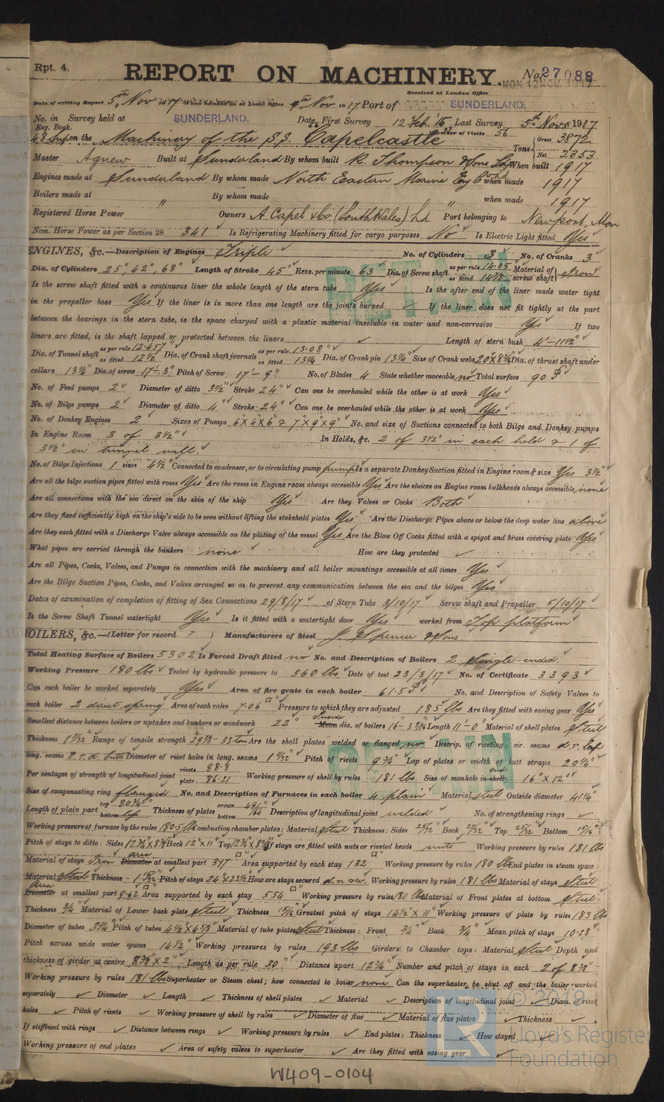 Rpt. 4.
REPORT ON MACHINERY.
No. 27088
MON 12 NOV 1917
Received at London Office
Date of writing Report 5th Nov 1917 When handed in at Local Office 9th Nov 1917 Port of SUNDERLAND.
No. in Survey held at SUNDERLAND. Date, First Survey 12 Feb. 16 Last Survey 5th Nov 1917
Reg. Book. Number of Visits 56
43 Sup on the Machinery of the S.S. Capelcastle Tons Gross 3872 Net 2353
Master Agnew Built at Sunderland By whom built R. Thompson & Sons Ld When built 1917
Engines made at Sunderland By whom made North Eastern Marine Eng Co Ld when made 1917
Boilers made at " By whom made " when made 1917
Registered Horse Power Owners A Capel & Co (South Wales) Ld Port belonging to Newport, Mon
Nom. Horse Power as per Section 28 341 Is Refrigerating Machinery fitted for cargo purposes No Is Electric Light fitted Yes
ENGINES, &c.—Description of Engines Triple No. of Cylinders 3 No. of Cranks 3
Dia. of Cylinders 25", 42", 68" Length of Stroke 45" Revs. per minute 63 Dia. of Screw shaft as per rule 14.03 as fitted 14 7/8 Material of screw shaft
Is the screw shaft fitted with a continuous liner the whole length of the stern tube Yes Is the after end of the liner made water tight
in the propeller boss Yes If the liner is in more than one length are the joints burned If the liner does not fit tightly at the part
between the bearings in the stern tube, is the space charged with a plastic material insoluble in water and non-corrosive Yes If two
liners are fitted, is the shaft lapped or protected between the liners Length of stern bush 4'-11½"
Dia. of Tunnel shaft as per rule 12.457 as fitted 12½ Dia. of Crank shaft journals as per rule 13.08" as fitted 13¼ Dia. of Crank pin 13¼ Size of Crank webs 20x8¼ Dia. of thrust shaft under
collars 13¼ Dia. of screw 17'-3" Pitch of Screw 17'-9" No. of Blades 4 State whether moveable no Total surface 90
No. of Feed pumps 2 Diameter of ditto 3½" Stroke 24" Can one be overhauled while the other is at work Yes
No. of Bilge pumps 2 Diameter of ditto 4" Stroke 24" Can one be overhauled while the other is at work Yes
No. of Donkey Engines 2 Sizes of Pumps 6x4x6 & 7x9x9" No. and size of Suctions connected to both Bilge and Donkey pumps
In Engine Room 3 of 3½" In Holds, &c. 2 of 3½" in each hold & 1 of
3½" in tunnel well
No. of Bilge Injections 1 sizes 4½" Connected to condenser, or to circulating pump pump Is a separate Donkey Suction fitted in Engine room & size Yes 3½"
Are all the bilge suction pipes fitted with roses Yes Are the roses in Engine room always accessible Yes Are the sluices on Engine room bulkheads always accessible none
Are all connections with the sea direct on the skin of the ship Yes Are they Valves or Cocks Both
Are they fixed sufficiently high on the ship's side to be seen without lifting the stokehold plates Yes Are the Discharge Pipes above or below the deep water line above
Are they each fitted with a Discharge Valve always accessible on the plating of the vessel Yes Are the Blow Off Cocks fitted with a spigot and brass covering plate Yes
What pipes are carried through the bunkers none How are they protected
Are all Pipes, Cocks, Valves, and Pumps in connection with the machinery and all boiler mountings accessible at all times Yes
Are the Bilge Suction Pipes, Cocks, and Valves arranged so as to prevent any communication between the sea and the bilges Yes
Dates of examination of completion of fitting of Sea Connections 29/8/17 of Stern Tube 3/10/17 Screw shaft and Propeller 5/10/17
Is the Screw Shaft Tunnel watertight Yes Is it fitted with a watertight door Yes worked from Top platform
BOILERS, &c.—(Letter for record ) Manufacturers of Steel J. Spencer & Sons
Total Heating Surface of Boilers 5302 Is Forced Draft fitted no No. and Description of Boilers 2 Single ended
Working Pressure 180 lbs Tested by hydraulic pressure to 360 lbs Date of test 23/3/17 No. of Certificate 3393
Can each boiler be worked separately Yes Area of fire grate in each boiler 61.5 No. and Description of Safety Valves to
each boiler 2 direct spring Area of each valve 7.06 Pressure to which they are adjusted 185 lbs Are they fitted with easing gear Yes
Smallest distance between boilers or uptakes and bunkers or woodwork 22" Inside dia. of boilers 16-3 Length 11-0" Material of shell plates Steel
Thickness Range of tensile strength Are the shell plates welded or flanged no Descrip. of riveting: cir. seams d.r. lap
long. seams Diameter of rivet holes in long. seams Pitch of rivets 9¾" Lap of plates or width of butt straps
Per centages of strength of longitudinal joint rivets 88.9 plate 86.21 Working pressure of shell by rules 181 lbs Size of manhole in 16"x12"
Size of compensating ring flanged No. and Description of Furnaces in each boiler 4 plain Material steel Outside diameter 41¼
Length of plain part Thickness of plates Description of longitudinal joint welded No. of strengthening rings
Working pressure of furnace by the rules 180.5 lbs Combustion chamber plates: Material Steel Thickness: Sides Back Top Bottom
Pitch of stays to ditto: Sides Back 12"x11" Top If stays are fitted with nuts or riveted heads nuts Working pressure by rules 181 lbs
Material of stays Iron at smallest part Area supported by each stay 132 Working pressure by rules 180 lbs End plates in steam space:
Material Steel Thickness Pitch of stays How are stays secured d.n.w. Working pressure by rules 181 lbs Material of stays Steel
Area at smallest part Area supported by each stay 554 Working pressure by rules 181 lbs Material of Front plates at bottom Steel
Thickness Material of Lower back plate steel Thickness Greatest pitch of stays 14½"x11" Working pressure of plate by rules 183 lbs
Diameter of tubes 3¼ Pitch of tubes Material of tube plates Steel Thickness: Front Back Mean pitch of stays 10.28
Pitch across wide water spaces 14½" Working pressures by rules 193 lbs Girders to Chamber tops: Material Steel Depth and
thickness of girder at centre Length as per rule 30" Distance apart 12¾" Number and pitch of stays in each
Working pressure by rules 181 lbs Superheater or Steam chest; how connected to boiler none Can the superheater be shut off and the boiler worked
separately Diameter Length Thickness of shell plates Material Description of longitudinal joint Diam. of rivet
holes Pitch of rivets Working pressure of shell by rules Diameter of flue Material of flue plates Thickness
If stiffened with rings Distance between rings Working pressure by rules End plates: Thickness How stayed
Working pressure of end plates Area of safety valves to superheater Are they fitted with easing gear
W409-0104
Lloyd's Register
Foundation